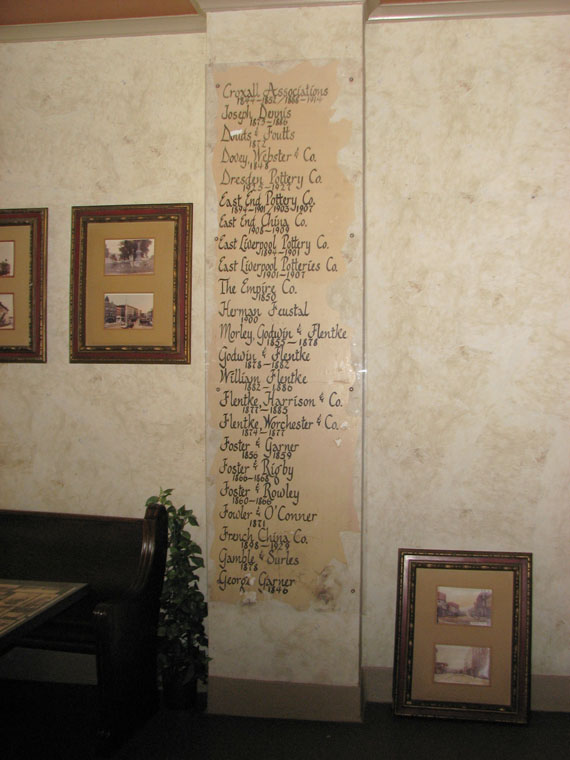 Croxall Associations
1844-1852/1888-1914
Joseph Dennis
1875-1886
& Foutts
1872
Dovey, Webster & Co.
1848
Dresden Pottery Co.
1925-1927
East End Pottery Co.
1894-1901/1903-1907
East End China Co.
1908-1909
East Liverpool Pottery Co.
1894-1901
East Liverpool Potteries Co.
1901-1907
The Empire Co.
1850
Herman Feustal
1900
Morley, Godwin & Flentke
1855-1878
Godwin & Flentke
1878-1882
William Flentke
1882-1886
Flentke, Harrison & Co.
1877-1885
Flentke, Worchester & Co.
1874-1877
Foster & Garner
1856 1859
Foster & Rigby
1866-1868
Foster & Rowley
1860-1866
Fowler & O'Conner
1871
French China Co.
1898-1929
Gamble & Surles
1878
George Garner
1846